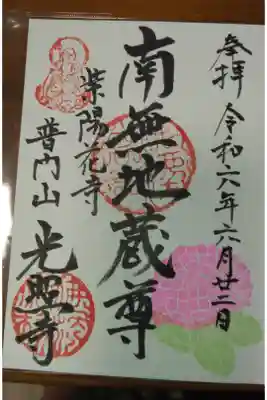 奉拝 令和六年六月廿二日
南無地蔵尊
紫陽花寺
普門山 光照寺